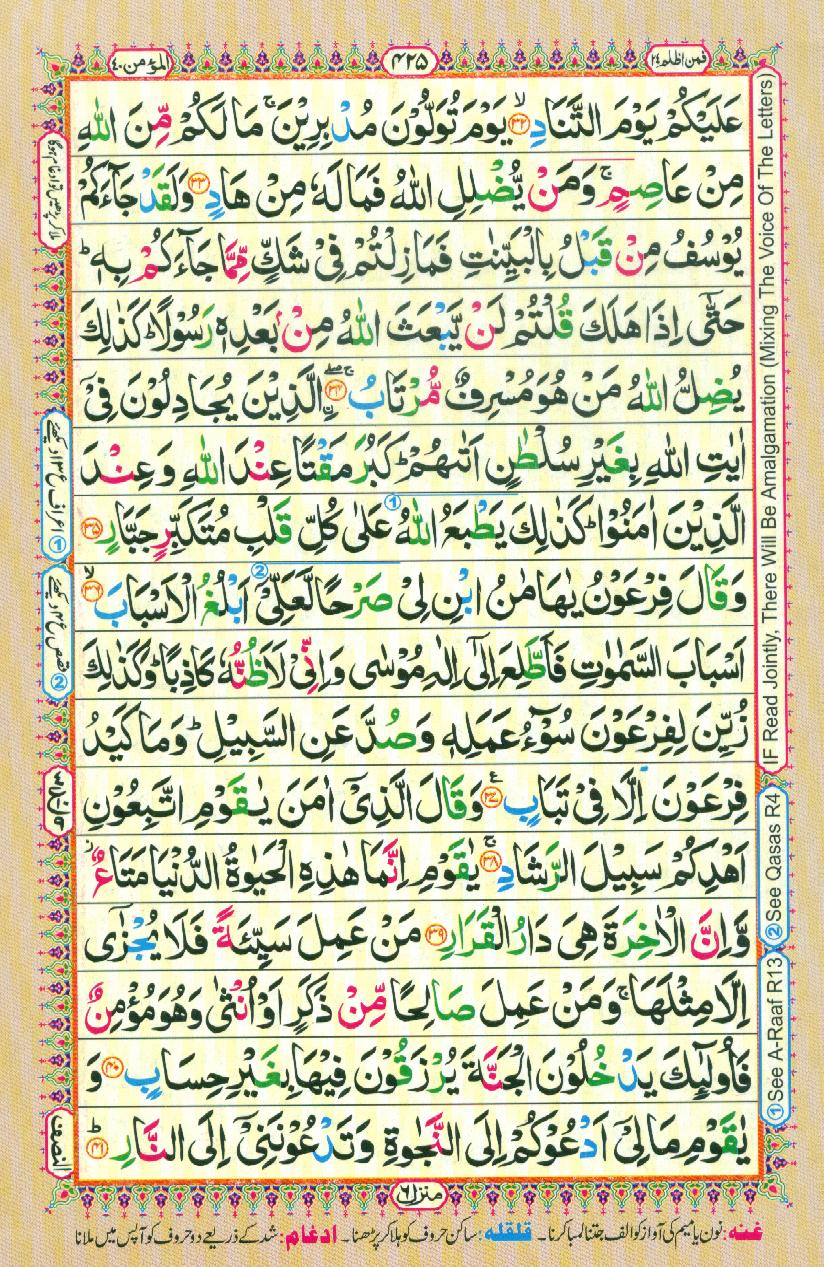 فمن اظلم ٢٤
٤٢٥
المؤمن ٤٠
عَلَيْكُمْ يَوْمَ التَّنَادِ ﴿٣٢﴾ۙ يَوْمَ تُوَلُّوْنَ مُدْبِرِيْنَ ۚ مَا لَكُمْ مِّنَ اللّٰهِ
مِنْ عَاصِمٍ ۚ وَمَنْ يُّضْلِلِ اللّٰهُ فَمَا لَهٗ مِنْ هَادٍ ﴿٣٣﴾ وَلَقَدْ جَآءَكُمْ
يُوْسُفُ مِنْ قَبْلُ بِالْبَيِّنٰتِ فَمَا زِلْتُمْ فِىْ شَكٍّ مِّمَّا جَآءَكُمْ بِهٖ ؕ
حَتّٰٓى اِذَا هَلَكَ قُلْتُمْ لَنْ يَّبْعَثَ اللّٰهُ مِنْۢ بَعْدِهٖ رَسُوْلًا ؕ كَذٰلِكَ
يُضِلُّ اللّٰهُ مَنْ هُوَ مُسْرِفٌ مُّرْتَابُ ﴿٣٤﴾ ۚۖ اِۨلَّذِيْنَ يُجَادِلُوْنَ فِىْٓ
اٰيٰتِ اللّٰهِ بِغَيْرِ سُلْطٰنٍ اَتٰٮهُمْ ؕ كَبُرَ مَقْتًا عِنْدَ اللّٰهِ وَعِنْدَ
الَّذِيْنَ اٰمَنُوْا ؕ كَذٰلِكَ يَطْبَعُ اللّٰهُ ① عَلٰى كُلِّ قَلْبِ مُتَكَبِّرٍ جَبَّارٍ ﴿٣٥﴾
وَقَالَ فِرْعَوْنُ يٰهَامٰنُ ابْنِ لِىْ ② صَرْحًا لَّعَلِّىْٓ اَبْلُغُ الْاَسْبَابَ ﴿٣٦﴾ۙ
اَسْبَابَ السَّمٰوٰتِ فَاَطَّلِعَ اِلٰٓى اِلٰهِ مُوْسٰى وَاِنِّىْ لَاَظُنُّهٗ كَاذِبًا ؕ وَكَذٰلِكَ
زُيِّنَ لِفِرْعَوْنَ سُوْٓءُ عَمَلِهٖ وَصُدَّ عَنِ السَّبِيْلِ ؕ وَمَا كَيْدُ
فِرْعَوْنَ اِلَّا فِىْ تَبَابٍ ﴿٣٧﴾ وَقَالَ الَّذِىْٓ اٰمَنَ يٰقَوْمِ اتَّبِعُوْنِ
اَهْدِكُمْ سَبِيْلَ الرَّشَادِ ﴿٣٨﴾ ۚ يٰقَوْمِ اِنَّمَا هٰذِهِ الْحَيٰوةُ الدُّنْيَا مَتَاعٌ ؗ
وَّاِنَّ الْاٰخِرَةَ هِىَ دَارُ الْقَرَارِ ﴿٣٩﴾ مَنْ عَمِلَ سَيِّئَةً فَلَا يُجْزٰٓى
اِلَّا مِثْلَهَا ۚ وَمَنْ عَمِلَ صَالِحًا مِّنْ ذَكَرٍ اَوْ اُنْثٰى وَهُوَ مُؤْمِنٌ
فَاُولٰٓئِكَ يَدْخُلُوْنَ الْجَنَّةَ يُرْزَقُوْنَ فِيْهَا بِغَيْرِ حِسَابٍ ﴿٤٠﴾ وَ
يٰقَوْمِ مَا لِىْٓ اَدْعُوْكُمْ اِلَى النَّجٰوةِ وَتَدْعُوْنَنِىْٓ اِلَى النَّارِ ﴿٤١﴾ؕ
IF Read Jointly, There Will Be Amalgamation (Mixing The Voice Of The Letters)
②See Qasas R4
①See A-Raaf R13
① اعراف ع ١٣ دیکھئے
② قصص ع ٤ دیکھئے
النصف
منزل ٦
غنه: نون یا میم کی آواز کو الف جتنا لمبا کرنا۔ قلقله: ساکن حروف کو ہلا کر پڑھنا۔ ادغام: شد کے ذریعے دو حروف کو آپس میں ملانا